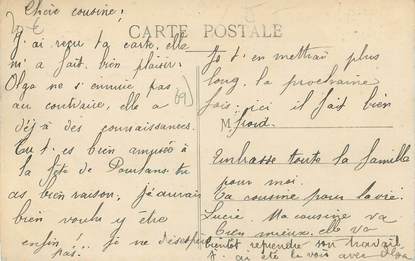 Chère cousine!
CARTE POSTALE
J'ai reçu ta carte, elle
m'a fait bien plaisir.
Olga ne s'ennuie pas
au contraire, elle a
déjà des connaissances.
Tu t'es bien amusée à
la fête de tu
as bien raison, j'aurais
bien voulu y être
enfin!... je ne désespère
pas.
69
Je t'en mettrai plus
long la prochaine
fois; ici il fait bien
froid.
M
Embrasse toute la famille
pour moi.
Ta cousine pour la vie.
Lucie. Ma cousine va
bien mieux, elle va
bientôt reprendre son travail
J'ai été la voir avec Olga